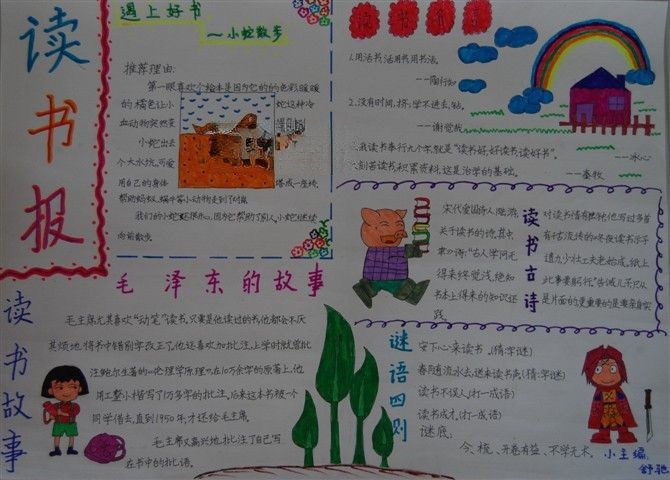 读书报
遇上好书
～小蛇散步
推荐理由:
第一眼喜欢个绘本是因为它的的色彩暖暖
的橘色让小 蛇这种冷
血动物突然变
小蛇出去
个大水坑,可爱
用自己的身体 搭成一座桥,
帮助蚂蚁、蜗牛等小动物走到了对岸
我们的小蛇蛇很开心,因为它帮助了别人,小蛇继续
向前散步
读书名言
1.用活书,活用书,用书活。
——陶行知
2.没有时间,挤;学不进去,钻。
——谢觉哉
我读书奉行九个字,就是“读书好,好读书,读好书”。
——冰心
刻苦读书,积累资料,这是治学的基础。
——秦牧
读书古诗
宋代爱国诗人陆游,
关于读书的诗,其中
来》诗:“古人学问无
得来终觉浅,绝知
书本上得来的知识还
践
对读书情有独钟,他写过多首
有一首流传的《冬夜读书示子
遗力,少壮工夫老始成。纸上
此事要躬行。”告诫儿子只从
是片面的,更重要的是要亲身实
毛泽东的故事
读书故事
毛主席尤其喜欢“动笔”读书,只要是他读过的书,他都会不厌
其烦地将书中错别字改正了。他还喜欢加批注,上学时就曾批
注鲍尔生著的《伦理学原理》,在10万余字的原著上,他
用工整小楷写了1万多字的批注,后来这本书被一个
同学借去,直到1950年,才还给毛主席。
毛主席又高兴地批注了自己写
在书中的批语。
谜语四则
安下心来读书。(猜字谜)
春随流水去,送来读书声(猜字谜)
读书不误人(打一成语)
读书成才(打一成语)
谜底:
今、梳、开卷有益、不学无术。
小主编:
舒驰